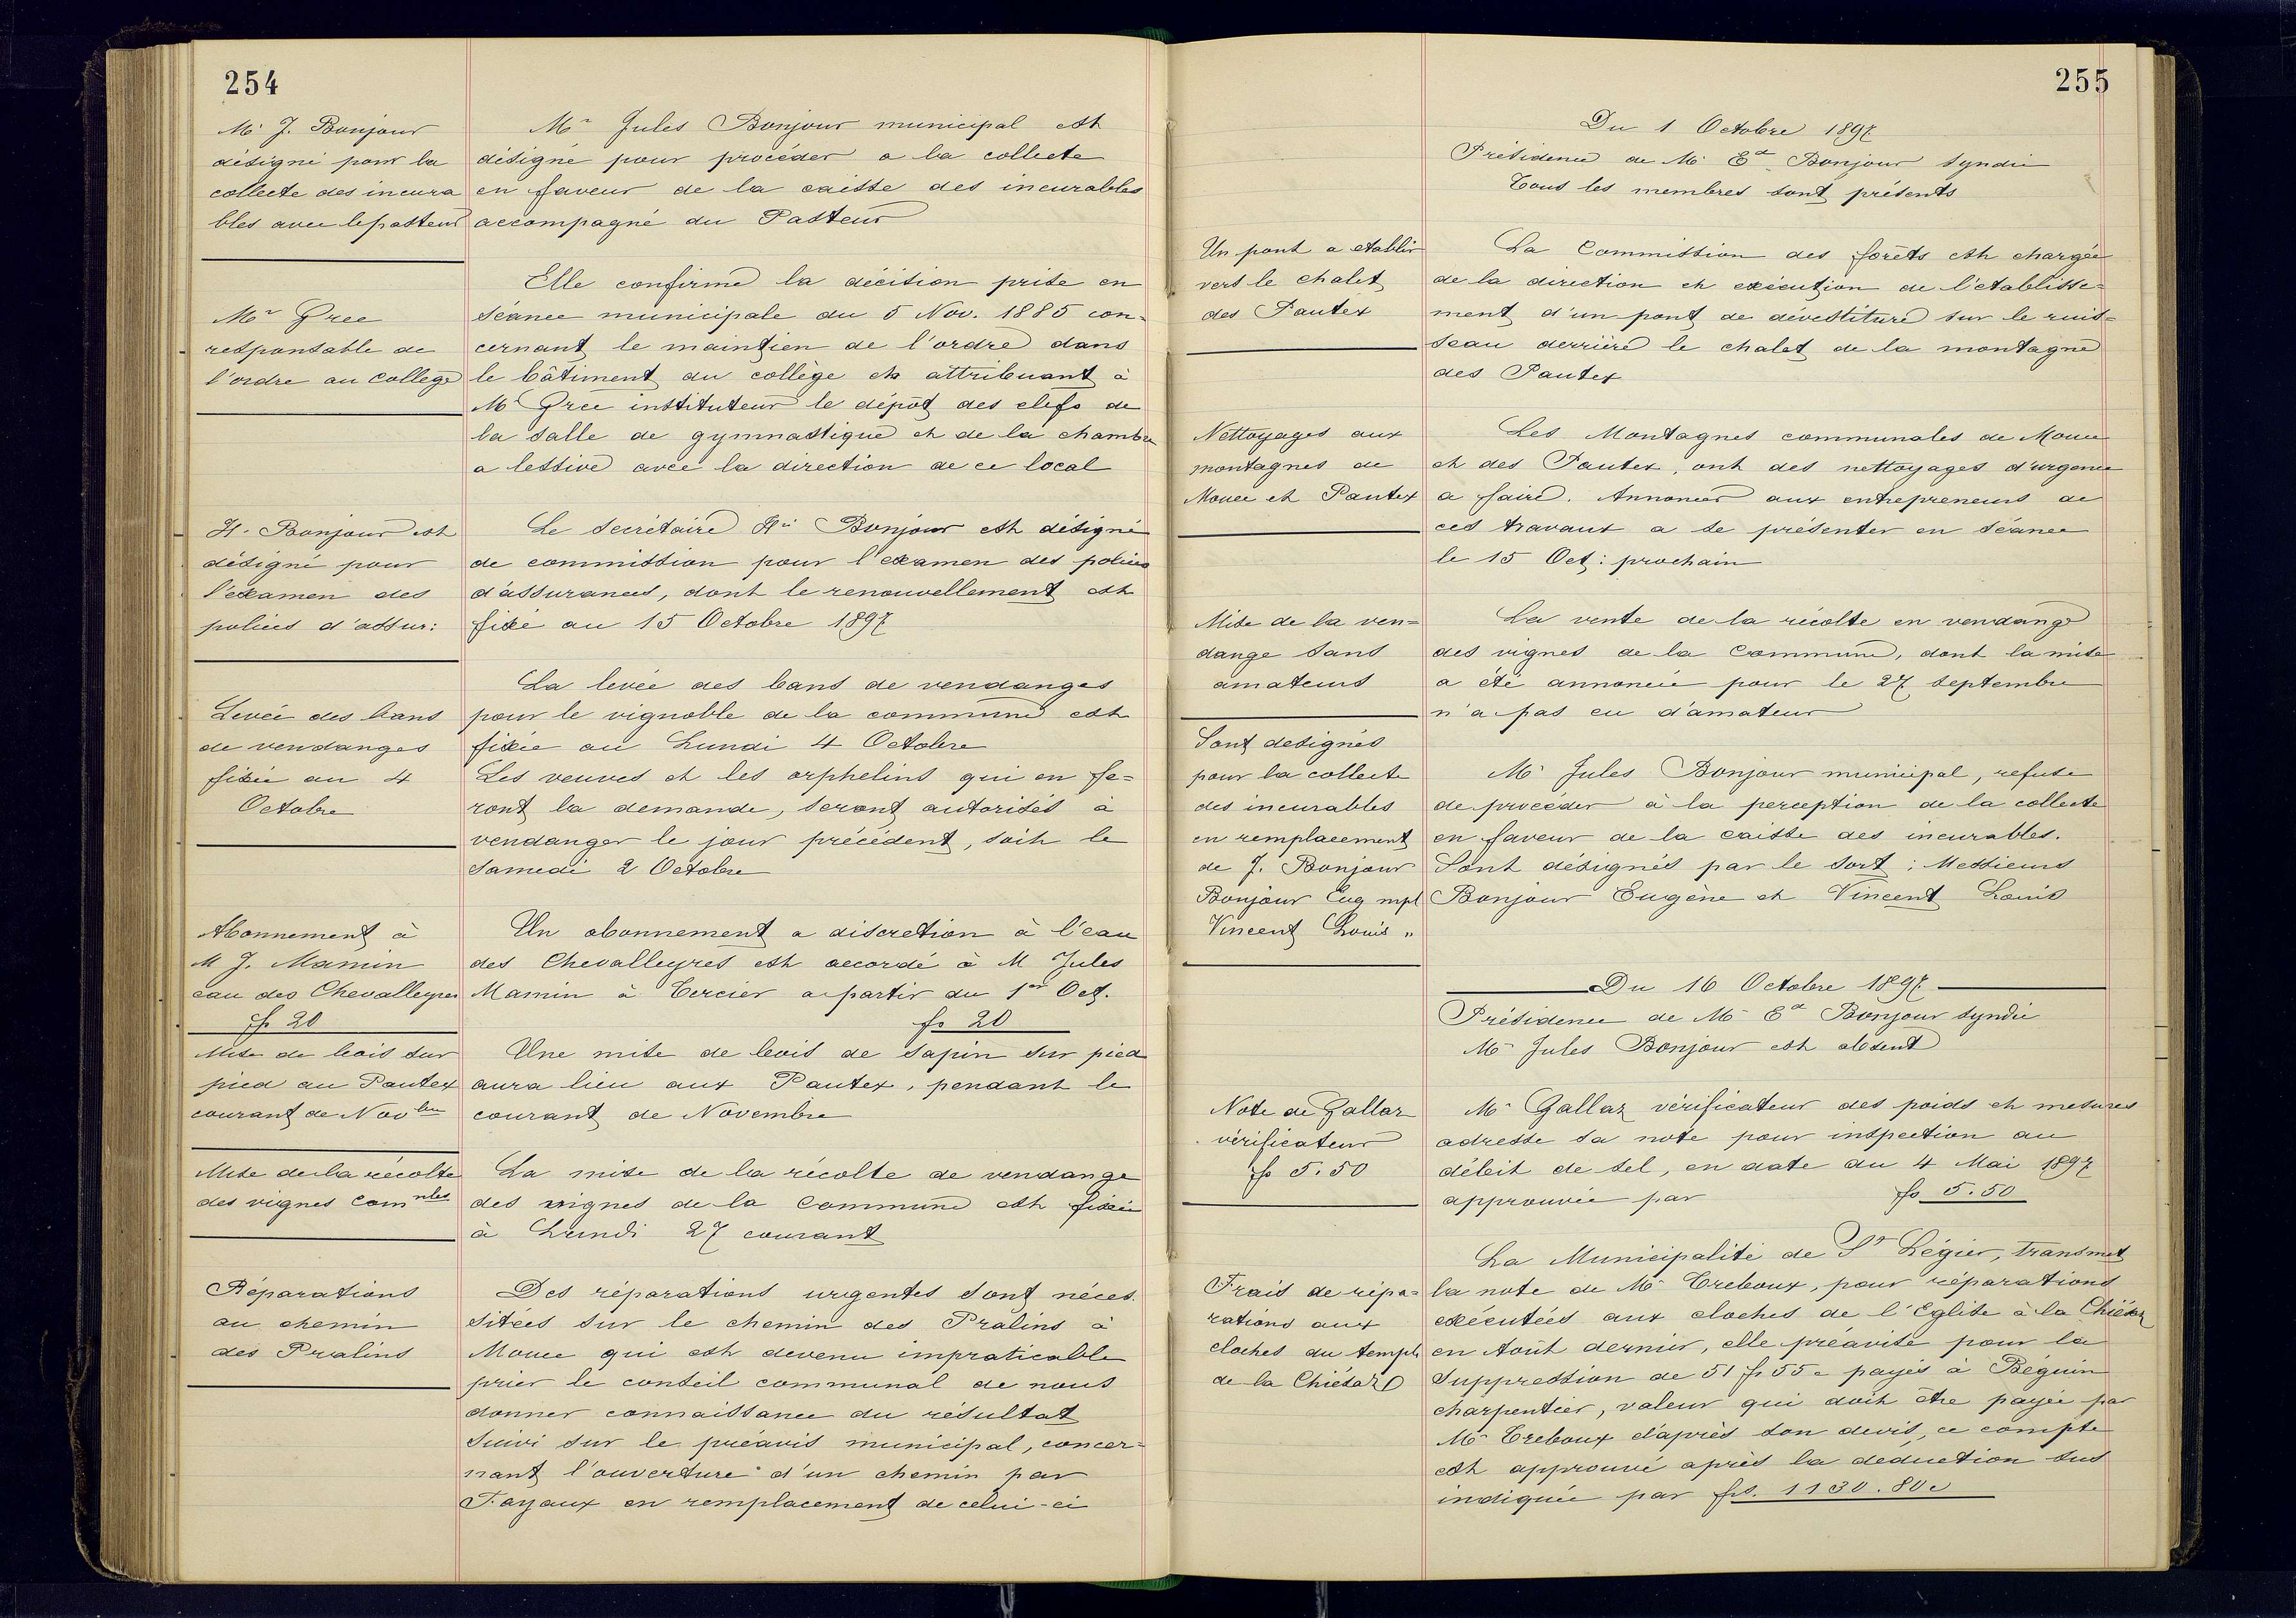 254
Mr J. Bonjour
désigné pour la
collecte des incura
bles avec le pasteur
Mr Jules Bonjour municipal est
désigné pour procéder a la collecte
en faveur de la caisse des incurables
accompagné du Pasteur
Mr Grec
responsable de
l'ordre au collège
Elle confirme la décision prise en
séance municipale du 5 Nov. 1885 con-
cernant le maintien de l'ordre dans
le bâtiment du collège et attribuant à
Mr Grec instituteur le dépôt des clefs de
la salle de gymnastique et de la chambre
a lessive avec la direction de ce local
H. Bonjour est
désigné pour
l'examen des
polices d'assur:
Le secrétaire Hri Bonjour est désigné
de commission pour l'examen des polices
d'assurances, dont le renouvellement est
fixé au 15 Octobre 1897
Levée des bans
de vendanges
fixée au 4
Octobre
La levée des bans de vendanges
pour le vignoble de la commune est
fixée au Lundi 4 Octobre
Les veuves et les orphelins qui en fe=
ront la demande, seront autorisés à
vendanger le jour précédent, soit le
Samedi 2 Octobre
Abonnement à
M J. Mamin
eau des Chevalleyres
fs 20
Un abonnement a discretion à l'eau
des Chevalleyres est accordé à M Jules
Mamin à Tercier a partir du 1er Oct.
fs 20
Mise de bois sur
pied au Pautex
courant de Novbre
Une mise de bois de sapin sur pied
aura lieu aux Pautex, pendant le
courant de Novembre
Mise de la récolte
des vignes comnles
La mise de la récolte de vendange
des vignes de la Commune est fixée
à Lundi 27 courant
Réparations
au chemin
des Pralins
Des réparations urgentes sont néces
sitées sur le chemin des Pralins à
Mouce qui est devenu impraticable
prier le conseil communal de nous
donner connaissance du résultat
suivi sur le préavis municipal, concer=
nant l'ouverture d'un chemin par
Fayaux en remplacement de celui-ci
255
Du 1 Octobre 1897.
Présidence de Mr Ed Bonjour syndic
Tous les membres sont présents
Un pont a etablir
vers le chalet
des Pautex
La Commission des forêts est chargée
de la direction et exécution de l'établisse=
ment d'un pont de dévestiture sur le ruis=
seau derrière le chalet de la montagne
des Pautex
Nettoyages aux
montagnes de
Mouce et Pautex
Les Montagnes communales de Mouce
et des Pautex, ont des nettoyages d'urgence
a faire. Annoncer aux entrepreneurs de
ces travaux a se présenter en séance
le 15 Oct: prochain
Mise de la ven=
dange sans
amateurs
La vente de la récolte en vendange
des vignes de la Commune, dont la mise
a été annoncée pour le 27 septembre
n'a pas eu d'amateur
Sont designés
pour la collecte
des incurables
en remplacement
de J. Bonjour
Bonjour Eug mpl
Vincent Louis "
Mr Jules Bonjour municipal, refuse
de procéder à la perception de la collecte
en faveur de la caisse des incurables.
Sont désignés par le sort: Messieurs
Bonjour Eugène et Vincent Louis
Du 16 Octobre 1897.
Présidence de Mr Ed Bonjour syndic
Mr Jules Bonjour est absent
Note de Gallaz
vérificateur
fs 5.50
Mr Gallaz vérificateur des poids et mesures
adresse sa note pour inspection au
débit de sel, en date du 4 Mai 1897
approuvée par fs 5.50
Frais de répa=
rations aux
cloches du temple
de la Chiésaz
La Municipalité de St Légier, transmet
la note de Mr Treboux, pour réparations
exécutées aux cloches de l'Eglise à la Chiésaz
en Août dernier, elle préavise pour la
suppression de 51 fr 55 c payés à Béguin
charpentier, valeur qui doit être payée par
Mr Treboux d'après son devis, ce compte
est approuvé après la déduction sus
indiquée par frs. 1130.80 c